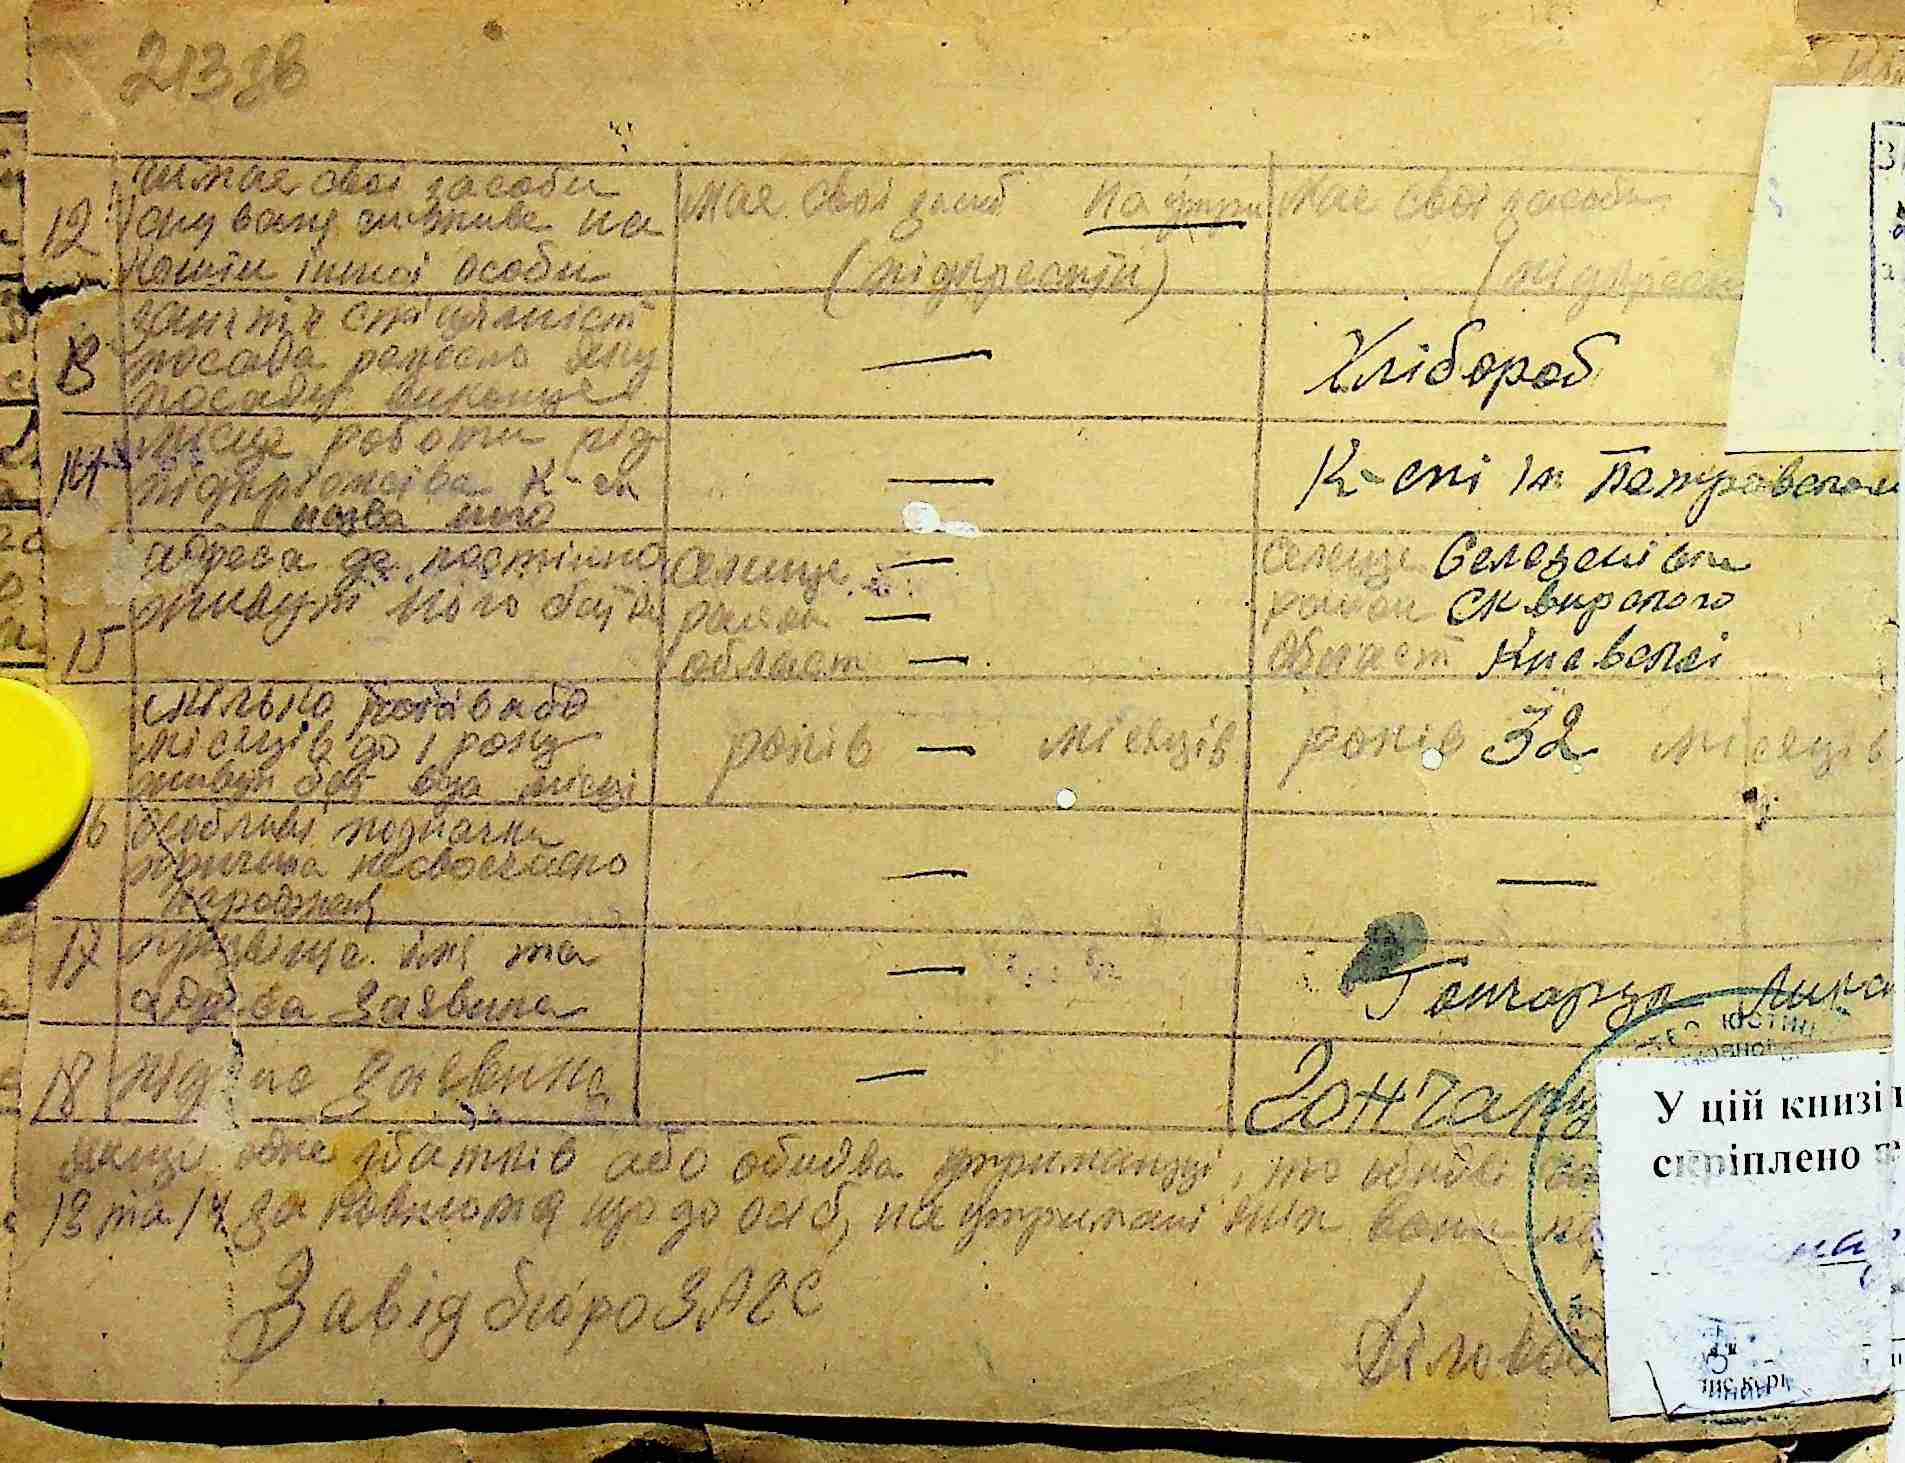 213 зв
12 чи має свої засоби
існуванн чи живе на
кошти іншої особи
має свої засоб на утри
(підкреслити)
має свої засоби
(підкресл
13 заняття спеціальніст
посада ремесло яку
посаду виконує
—
Хлібороб
14 місце роботи рід
підприємства к-сп
назва його
—
К-спі ім Петровсько
15 адреса де постійно
живуть його батьки
селище —
район —
област —
селище Селезенівки
район Сквирського
област Київської
скільки років або
місяців до 1 року
живут бат в ца місці
років — місяців
років 32 місяців
16 особливі позначки
причина несвоєчасно
народжен
—
—
17 прізвище ім'я та
адреса заявника
—
Гончарук Лука
18 підпис заявника
—
Гончарук
якщо одне з батьків або обидва утриманці, то
13 та 14 заповнюють щодо осіб, на утримані яких вони
Завід бюро ЗАГС
Ділово
ЮСТИ
У цій книзі
скріплено